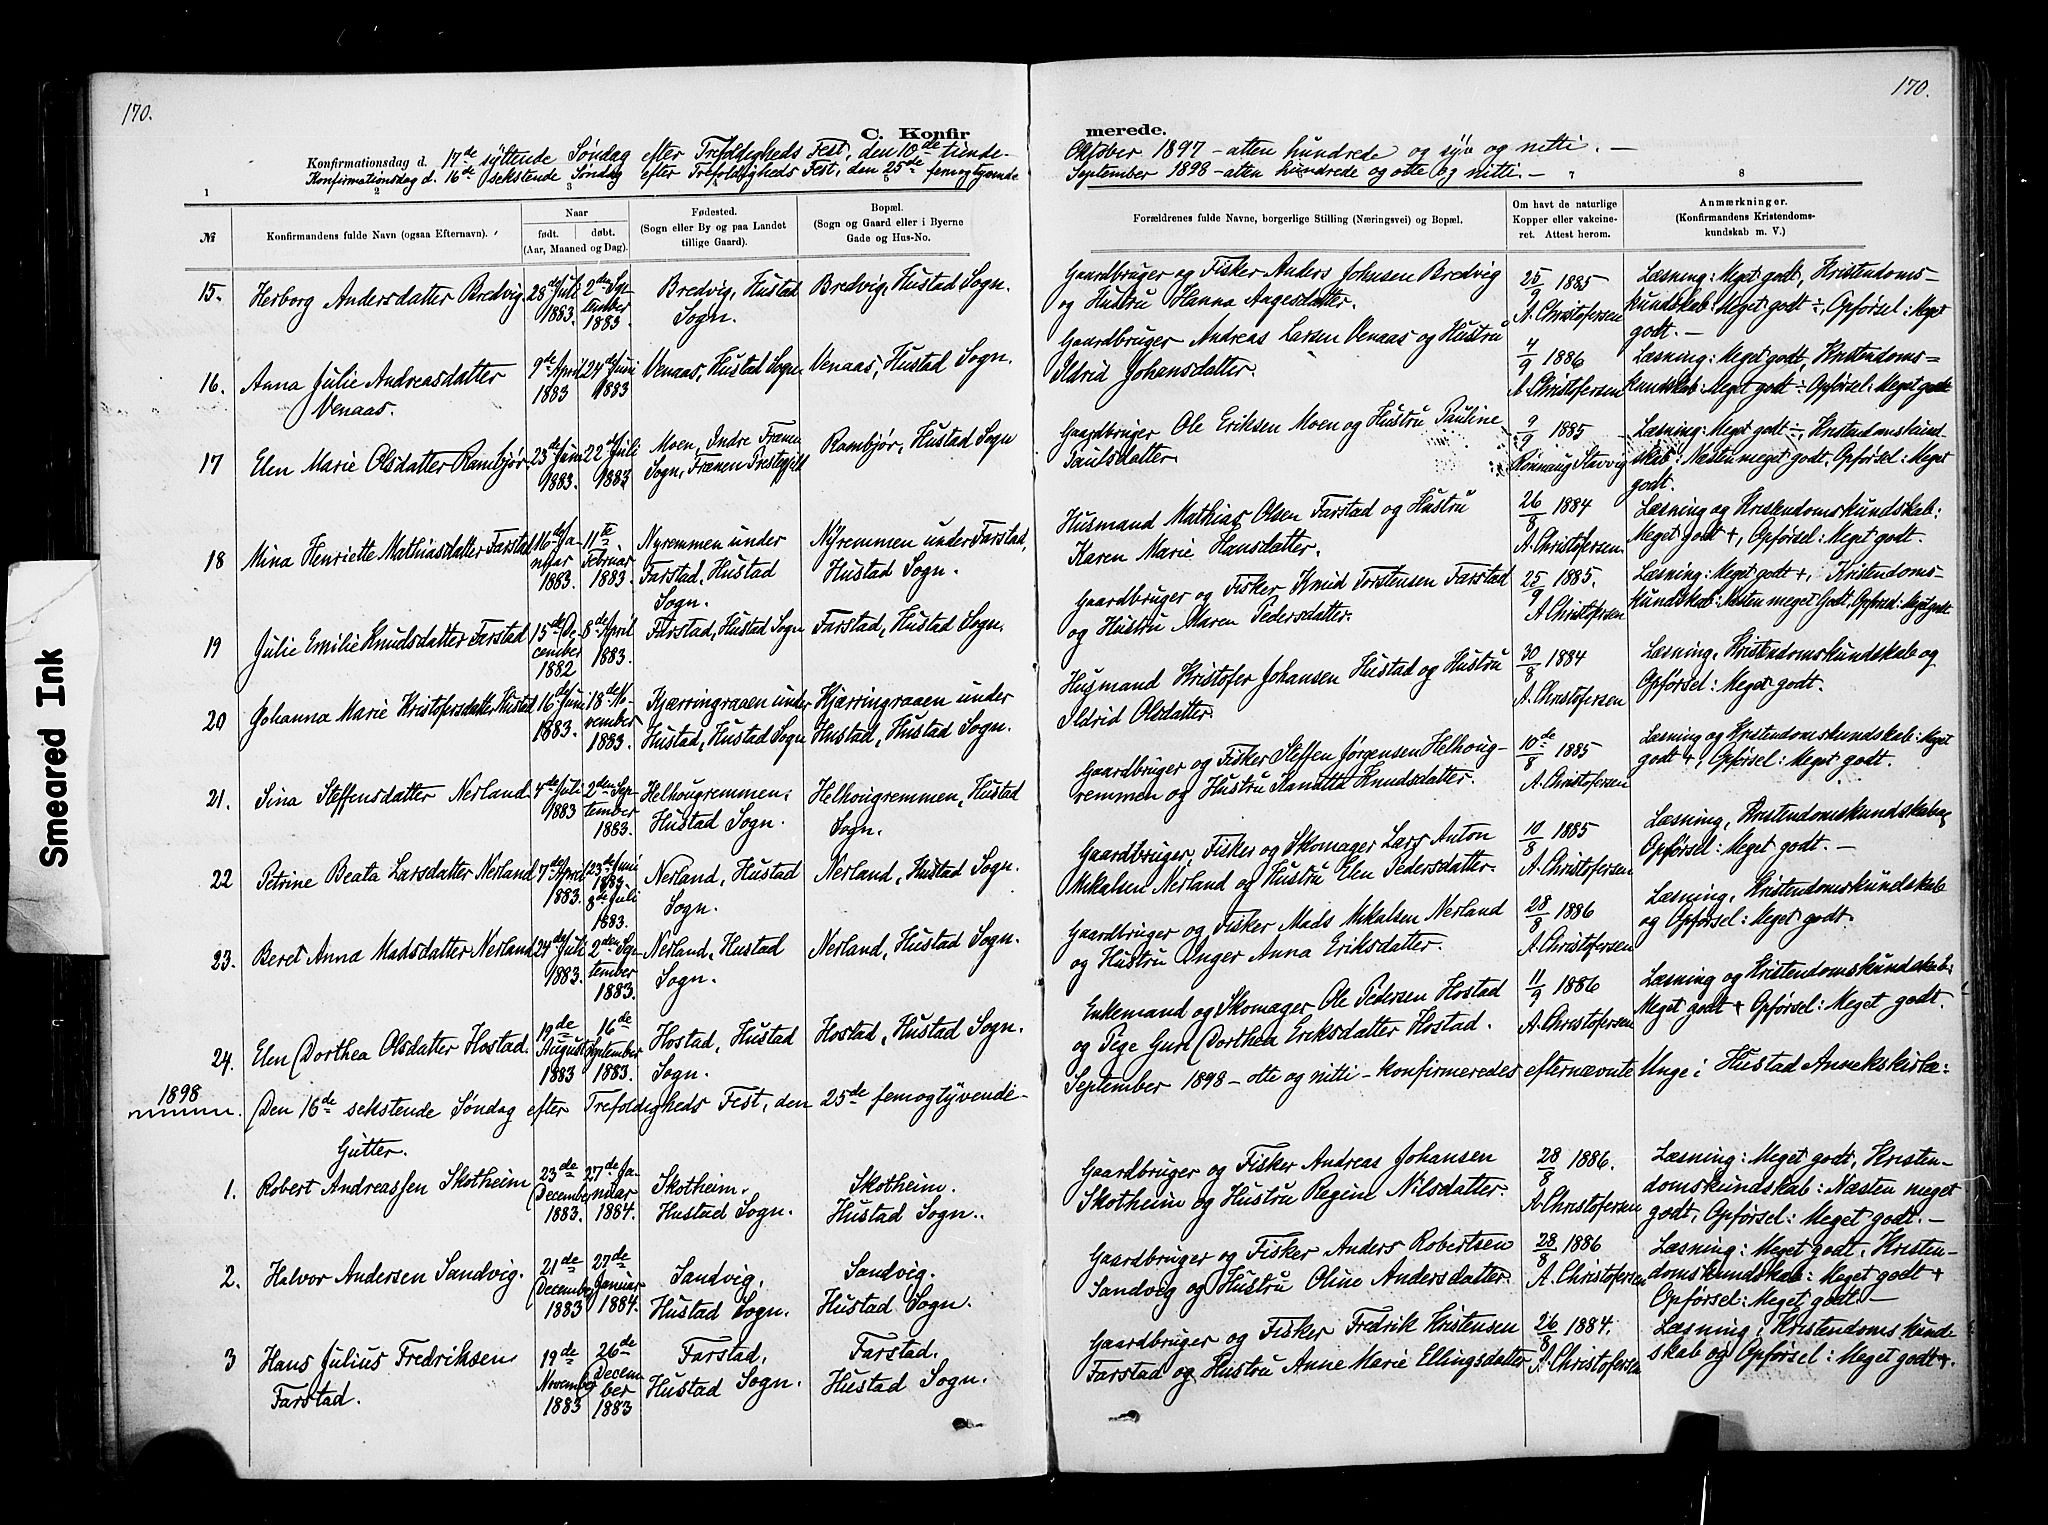 170.
170.
C. Konfirmerede.
Konfirmationsdag d. 17de syttende Søndag efter Trefoldigheds Fest, den 10de tiende Oktober 1897 - atten hundrede og syv og nitti. -
Konfirmationsdag d. 16de sekstende Søndag efter Trefoldigheds Fest, den 25de femogtyvende September 1898 - atten hundrede og otte og nitti. -
1 2 3 5 7 8
№
Konfirmandens fulde Navn (ogsaa Efternavn).
Naar
født. døbt.
(Aar, Maaned og Dag).
Fødested.
(Sogn eller By og paa Landet
tillige Gaard).
Bopæl.
(Sogn og Gaard eller i Byerne
Gade og Hus-No.
Forældrenes fulde Navne, borgerlige Stilling (Næringsvei) og Bopæl.
Om havt de naturlige
Kopper eller vakcine-
ret. Attest herom.
Anmærkninger.
(Konfirmandens Kristendoms-
kundskab m. V.)
15. Herborg Andersdatter Bredvig
28de Juli 1883.
2den September 1883.
Bredvig, Hustad
Sogn.
Bredvig, Hustad Sogn.
Gaardbruger og Fisker Anders Johnsen Bredvig
og Hustru Hanna Aagesdatter.
25/9 1885
A. Christofersen
Læsning: Meget godt, Kristendoms-
kundskab: Meget godt ÷, Opførsel: Meget
godt. -
16. Anna Julie Andreasdatter
Venaas.
9de April 1883
24de Juni 1883
Venaas, Hustad Sogn
Venaas, Hustad Sogn.
Gaardbruger Andreas Larsen Venaas og Hustru
Ildrid Johansdatter.
4/9 1886
A. Christofersen
Læsning: Meget godt, Kristendoms-
kundskab: Meget godt ÷ Opførsel: Meget godt
17 Elen Marie Olsdatter Rambjør
23de Juni 1883.
22de Juli 1883
Moen, Indre Frænen
Sogn, Frænen Prestegjeld
Rambjør, Hustad Sogn
Gaardbruger Ole Eriksen Moen og Hustru Pauline
Paulsdatter
9/9 1885
Rønnaug Stavvig
Læsning: Meget godt ÷, Kristendomskund-
skab: Næsten meget godt, Opførsel: Meget
godt.
18 Mina Henriette Mathiasdatter Farstad
16de Januar 1883.
11te Februar 1883.
Nyremmen under
Farstad, Hustad
Sogn.
Nyremmen under Farstad,
Hustad Sogn.
Husmand Mathias Olsen Farstad og Hustru
Karen Marie Hansdatter.
26/8 1884
A. Christofersen.
Læsning og Kristendomskundskab:
Meget godt +, Opførsel: Meget godt.
19 Julie Emilie Knudsdatter Farstad
15de December 1882
8de April 1883.
Farstad, Hustad Sogn
Farstad, Hustad Sogn.
Gaardbruger og Fisker Knud Torstensen Farstad
og Hustru Maren Pedersdatter.
25/9 1885.
A. Christofersen
Læsning: Meget godt +, Kristendoms-
kundskab: Næsten meget Godt, Opførsel: Meget godt
20 Johanna Marie Kristofersdatter Hustad
16de Juni 1883.
18de November 1883.
Kjærringraaen under
Hustad, Hustad Sogn
Kjærringraaen under
Hustad, Hustad Sogn.
Husmand Kristofer Johansen Hustad og Hustru
Ildrid Olsdatter.
30/8 1884
A. Christofersen
Læsning, Kristendomskundskab og
Opførsel: Meget godt.
21. Sina Steffensdatter Nerland
4de Juli 1883
2den September 1883.
Helhougremmen,
Hustad Sogn.
Helhougremmen, Hustad
Sogn.
Gaardbruger og Fisker Steffen Jørgensen Helhoug-
remmen og Hustru Knudsdatter.
10de/8 1885
A. Christofersen
Læsning og Kristendomskundskab: Meget
godt +, Opførsel: Meget godt.
22 Petrine Beata Larsdatter Nerland
7de April 1883.
23de Juni 1883
8de Juli 1883.
Nerland, Hustad
Sogn.
Nerland, Hustad Sogn.
Gaardbruger, Fisker og Skomager Lars Anton
Mikalsen Nerland og Hustru Elen Pedersdatter.
10/8 1885
A. Christofersen
Læsning, Kristendomskundskab og
Opførsel: Meget godt. -
23. Beret Anna Madsdatter Nerland
24de Juli 1883.
2den September 1883.
Nerland, Hustad
Sogn.
Nerland, Hustad Sogn.
Gaardbruger og Fisker Mads Mikalsen Nerland
og Hustru Inger Anna Eriksdatter.
28/8 1886
A. Christofersen
Læsning, Kristendomskundskab
og Opførsel: Meget godt.
24. Elen Dorthea Olsdatter Hostad.
19de August 1883
16de September 1883.
Hostad, Hustad
Sogn.
Hostad, Hustad Sogn.
Enkemand og Skomager Ole Pedersen Hostad
og Pige Guri Dorthea Eriksdatter Hostad.
11/9 1886
A. Christofersen
Læsning og Kristendomskundskab:
Meget godt + Opførsel: Meget godt.
1898
Den 16de sekstende Søndag efter Trefoldigheds Fest, den 25de femogtyvende September 1898 - otte og nitti - konfirmeredes efternævnte Unge i Hustad Annekskirke:
Gutter.
1. Robert Andreassen Skotheim
23de December 1883.
27de Januar 1884.
Skotheim.
Hustad Sogn.
Skotheim.
Hustad Sogn.
Gaardbruger og Fisker Andreas Johansen
Skotheim og Hustru Regine Nilsdatter.
28/8 1886.
A. Christofersen
Læsning: Meget godt, Kristen-
domskundskab: Næsten meget
godt, Opførsel: Meget godt. -
2. Halvor Andersen Sandvig.
21de December 1883
27de Januar 1884.
Sandvig,
Hustad Sogn.
Sandvig.
Hustad Sogn.
Gaardbruger og Fisker Anders Robertsen
Sandvig og Hustru Oline Andersdatter.
28/8 1886
A. Christofersen
Læsning: Meget godt, Kristen-
domskundskab: Meget godt +
Opførsel: Meget godt. -
3 Hans Julius Fredriksen
Farstad.
19de November 1883
26de December 1883
Farstad,
Hustad Sogn.
Farstad.
Hustad Sogn.
Gaardbruger og Fisker Fredrik Kristensen
Farstad og Hustru Anne Marie Ellingsdatter
26/8 1884.
A. Christofersen
Læsning, Kristendomskund-
skab og Opførsel: Meget godt +.
Smeared Ink